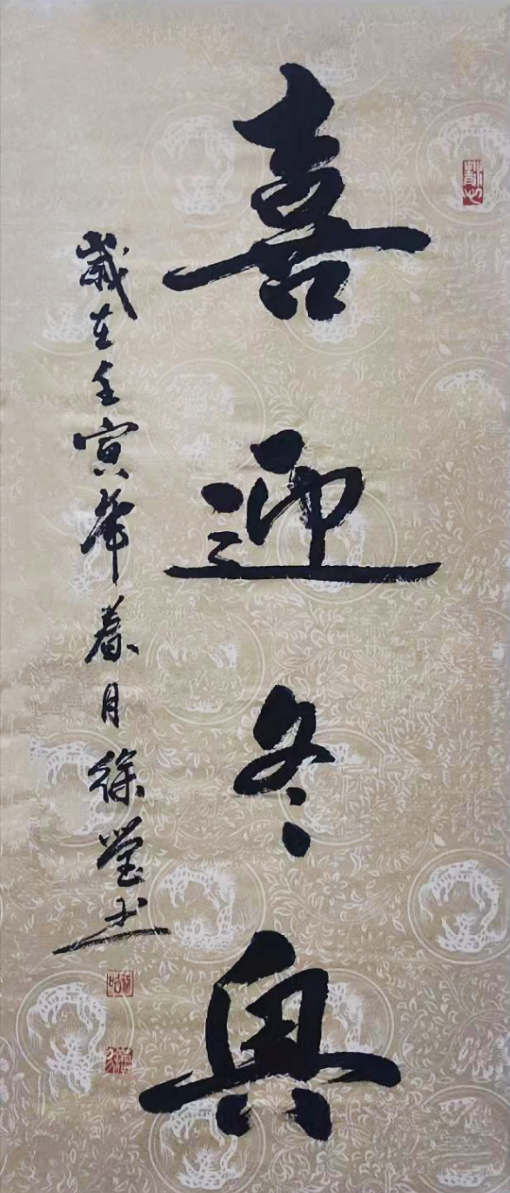 喜迎冬奥
歲在壬寅年春月徐莹书